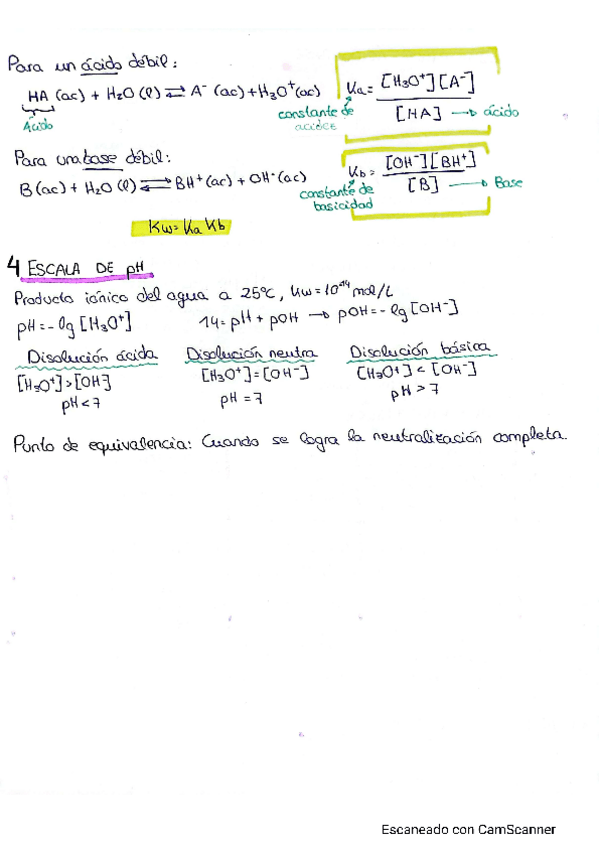 Para un ácido débil:
HA (ac) + H2O (l) ⇌ A⁻ (ac) + H3O⁺(ac)
Ácido
Ka = [H3O⁺][A⁻] / [HA] → ácido
constante de acidce
Para una base débil:
B(ac) + H2O (l) ⇌ BH⁺(ac) + OH⁻(ac)
Kb = [OH⁻][BH⁺] / [B] → Base
constante de basicidad
Kw = Ka Kb
4 ESCALA DE pH
Producto iónico del agua a 25ºC, Kw = 10⁻¹⁴ mol/L
pH = - lg [H3O⁺] 14 = pH + pOH → pOH = - lg [OH⁻]
Disolución ácida Disolución neutra Disolución básica
[H3O⁺] > [OH⁻] [H3O⁺] = [OH⁻] [H3O⁺] < [OH⁻]
pH < 7 pH = 7 pH > 7
Punto de equivalencia: Cuando se logra la neutralización completa.
Escaneado con CamScanner